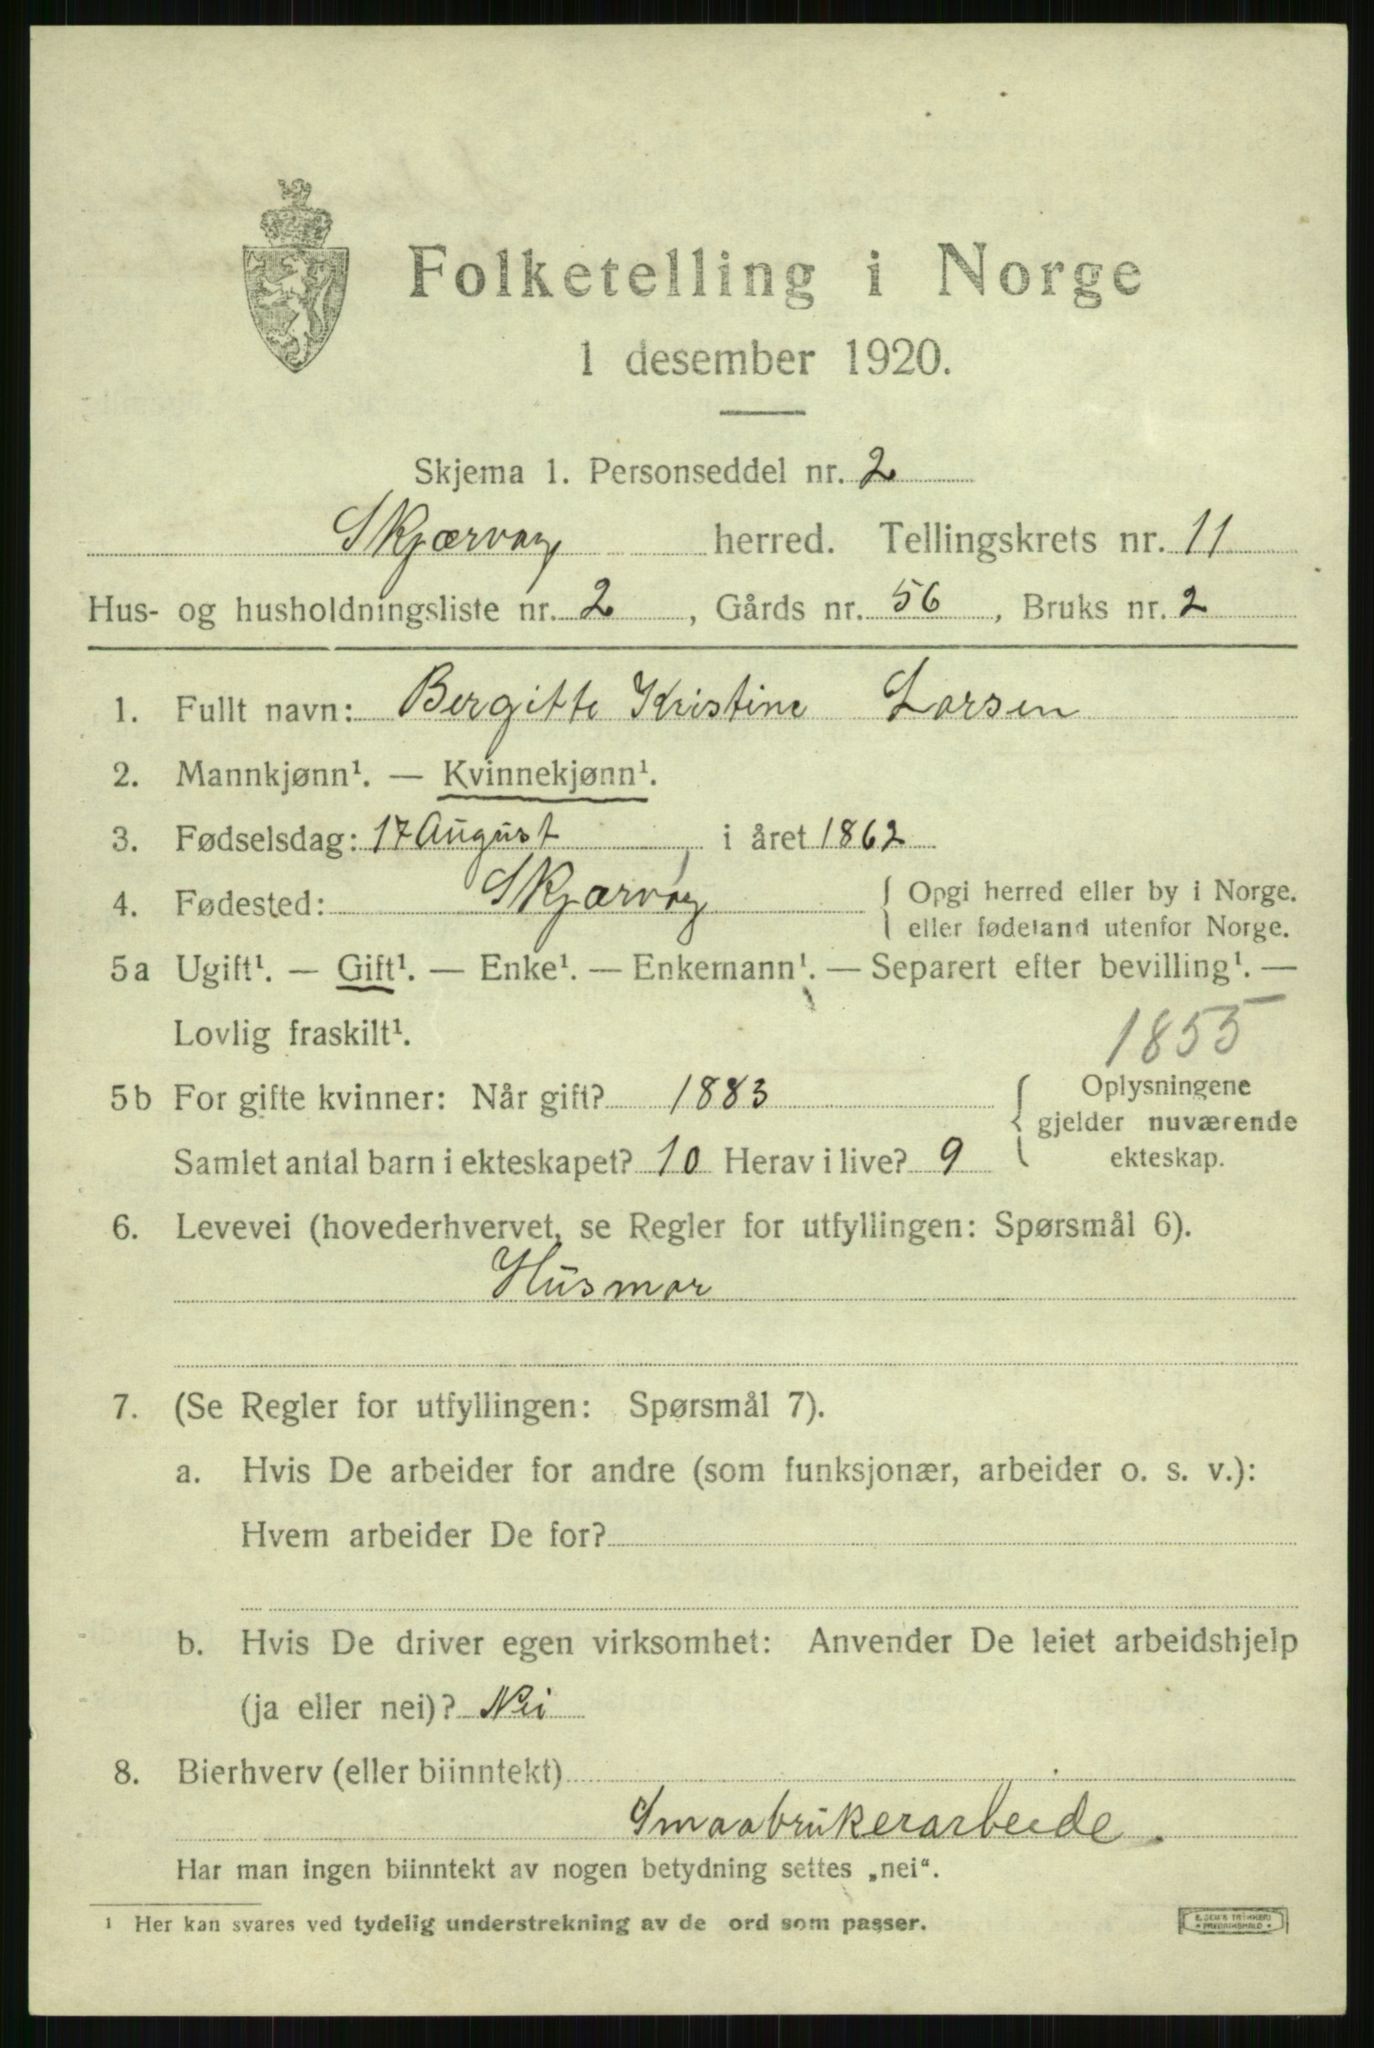 Folketelling i Norge
1 desember 1920.
Skjema 1. Personseddel nr. 2
Skjærvøy herred. Tellingskrets nr. 11
Hus- og husholdningsliste nr. 2, Gårds nr. 56, Bruks nr. 2
1. Fullt navn: Bergitte Kristine Larsen
2. Mannkjønn¹. — Kvinnekjønn¹.
3. Fødselsdag: 17 August i året 1862
4. Fødested: Skjærvøy { Opgi herred eller by i Norge.
eller fødeland utenfor Norge.
5a Ugift¹. — Gift¹. — Enke¹. — Enkemann¹. — Separert efter bevilling¹. —
Lovlig fraskilt¹.
1855
5b For gifte kvinner: Når gift? 1883 { Oplysningene
gjelder nuværende
ekteskap.
Samlet antal barn i ekteskapet? 10 Herav i live? 9
6. Levevei (hovederhvervet, se Regler for utfyllingen: Spørsmål 6).
Husmor
7. (Se Regler for utfyllingen: Spørsmål 7).
a. Hvis De arbeider for andre (som funksjonær, arbeider o. s. v.):
Hvem arbeider De for?
b. Hvis De driver egen virksomhet: Anvender De leiet arbeidshjelp
(ja eller nei)? Nei
8. Bierhverv (eller biinntekt)
Smaabrukerarbeide.
Har man ingen biinntekt av nogen betydning settes „nei“.
¹ Her kan svares ved tydelig understrekning av de ord som passer.